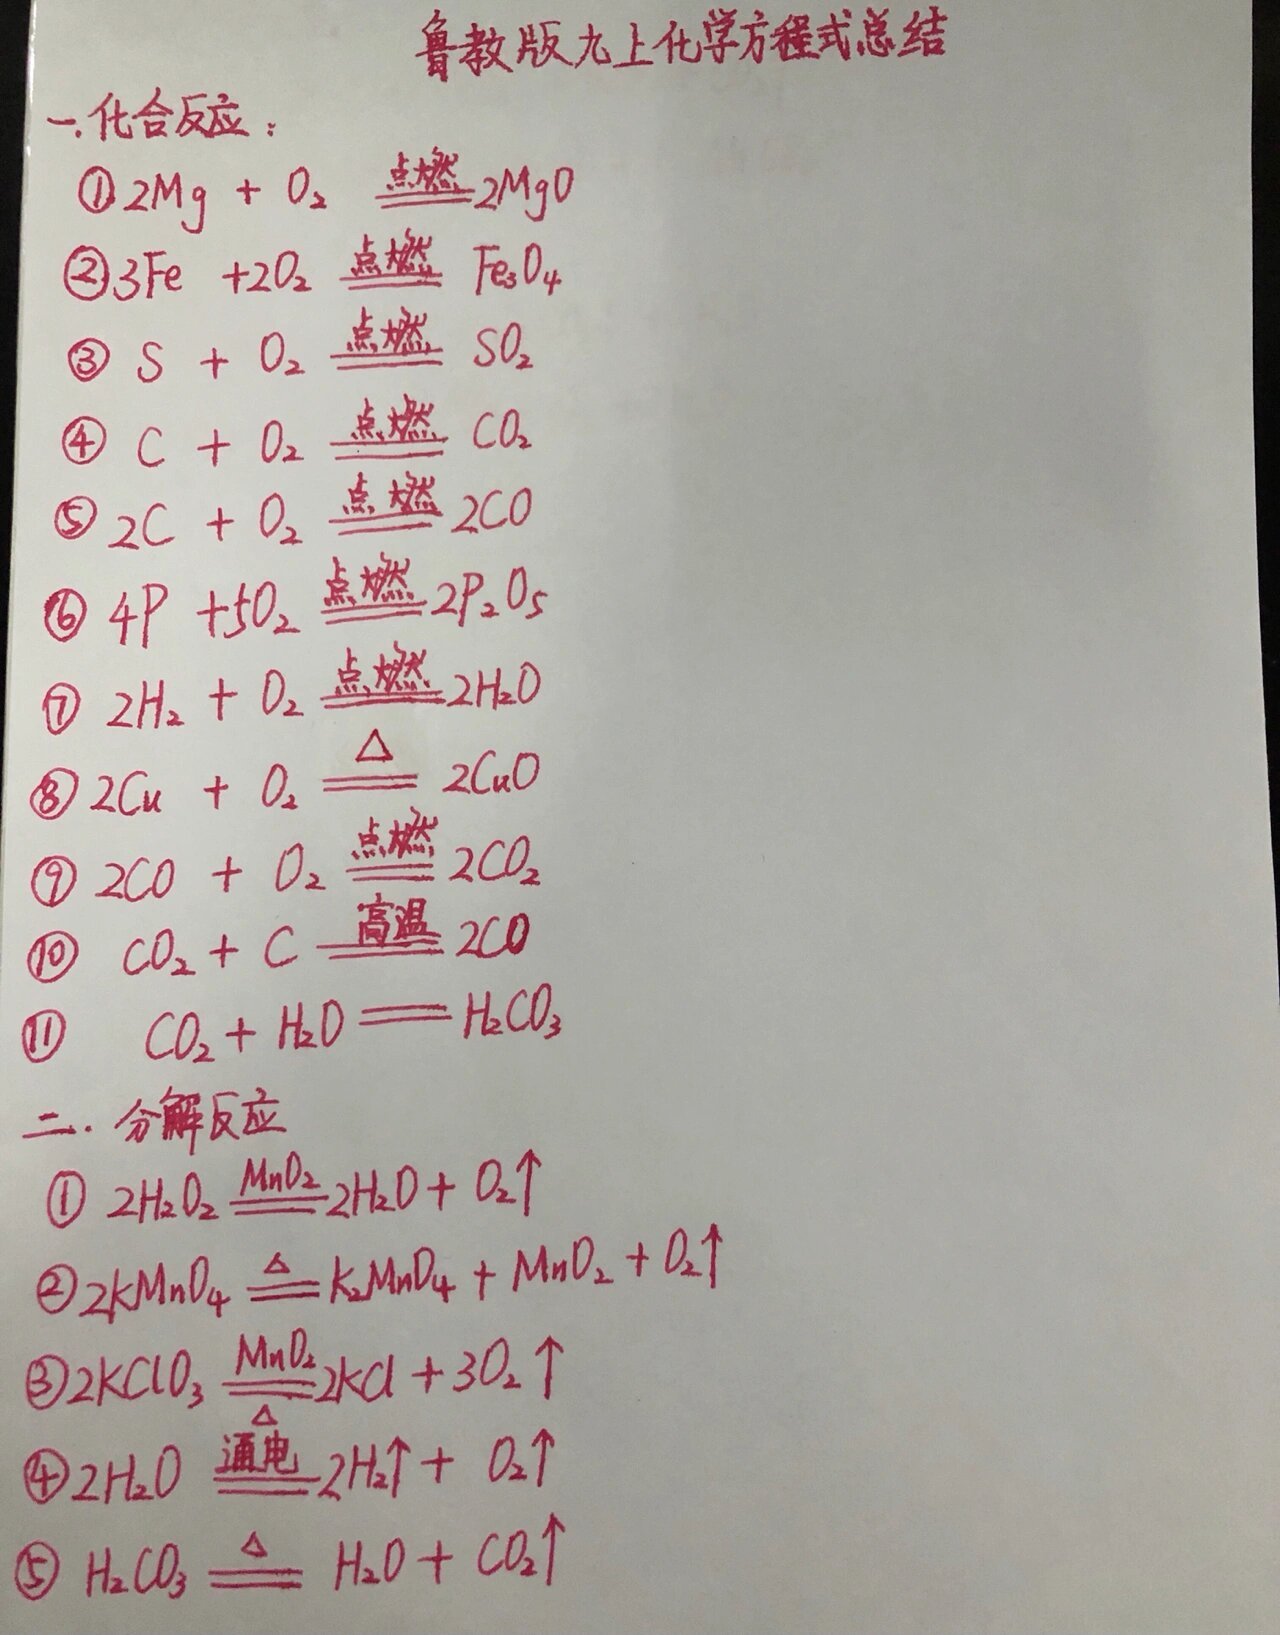 鲁教版九上化学方程式总结
一.化合反应:
①2Mg + O₂ 点燃 2MgO
②3Fe +2O₂ 点燃 Fe₃O₄
③ S + O₂ 点燃 SO₂
④ C + O₂ 点燃 CO₂
⑤ 2C + O₂ 点燃 2CO
⑥ 4P +5O₂ 点燃 2P₂O₅
⑦ 2H₂ + O₂ 点燃 2H₂O
⑧ 2Cu + O₂ △ 2CuO
⑨ 2CO + O₂ 点燃 2CO₂
⑩ CO₂ + C 高温 2CO
⑪ CO₂ + H₂O = H₂CO₃
二.分解反应
① 2H₂O₂ MnO₂ 2H₂O + O₂↑
②2KMnO₄ △ K₂MnO₄ + MnO₂ + O₂↑
③2KClO₃ MnO₂ △ 2KCl + 3O₂↑
④2H₂O 通电 2H₂↑ + O₂↑
⑤ H₂CO₃ △ H₂O + CO₂↑